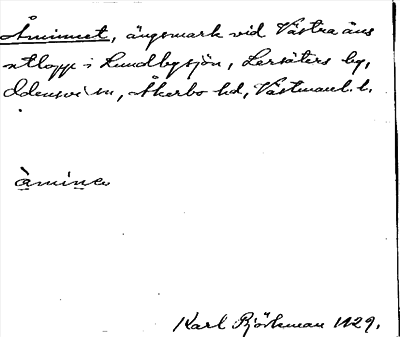 Åminnet, ängsmark vid Västra åns
utlopp i Lundbysjön, Lersäters by,
Odensvi sn, Åkerbo hd, Västmanl. l.
åmìnə
Karl Björkman 1929.